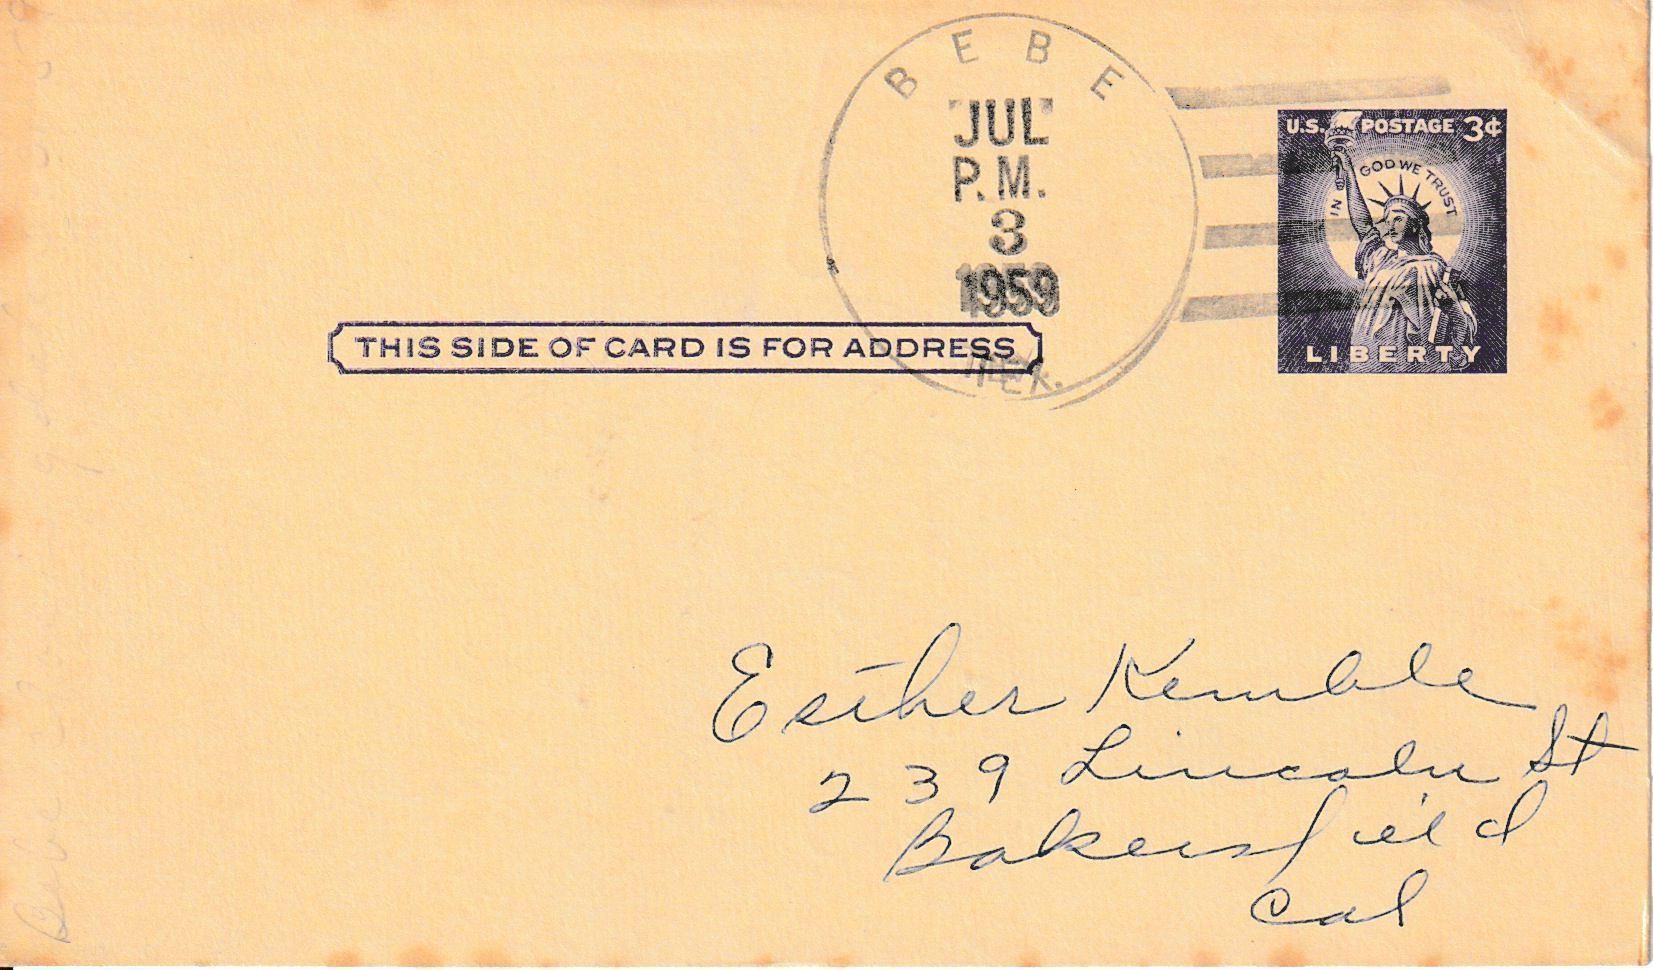 BEBE
JUL
P.M.
3
1959
TEX.
U.S. POSTAGE 3¢
IN GOD WE TRUST
LIBERTY
THIS SIDE OF CARD IS FOR ADDRESS
Esther Kemble
239 Lincoln St
Bakersfield
Cal
Bebe